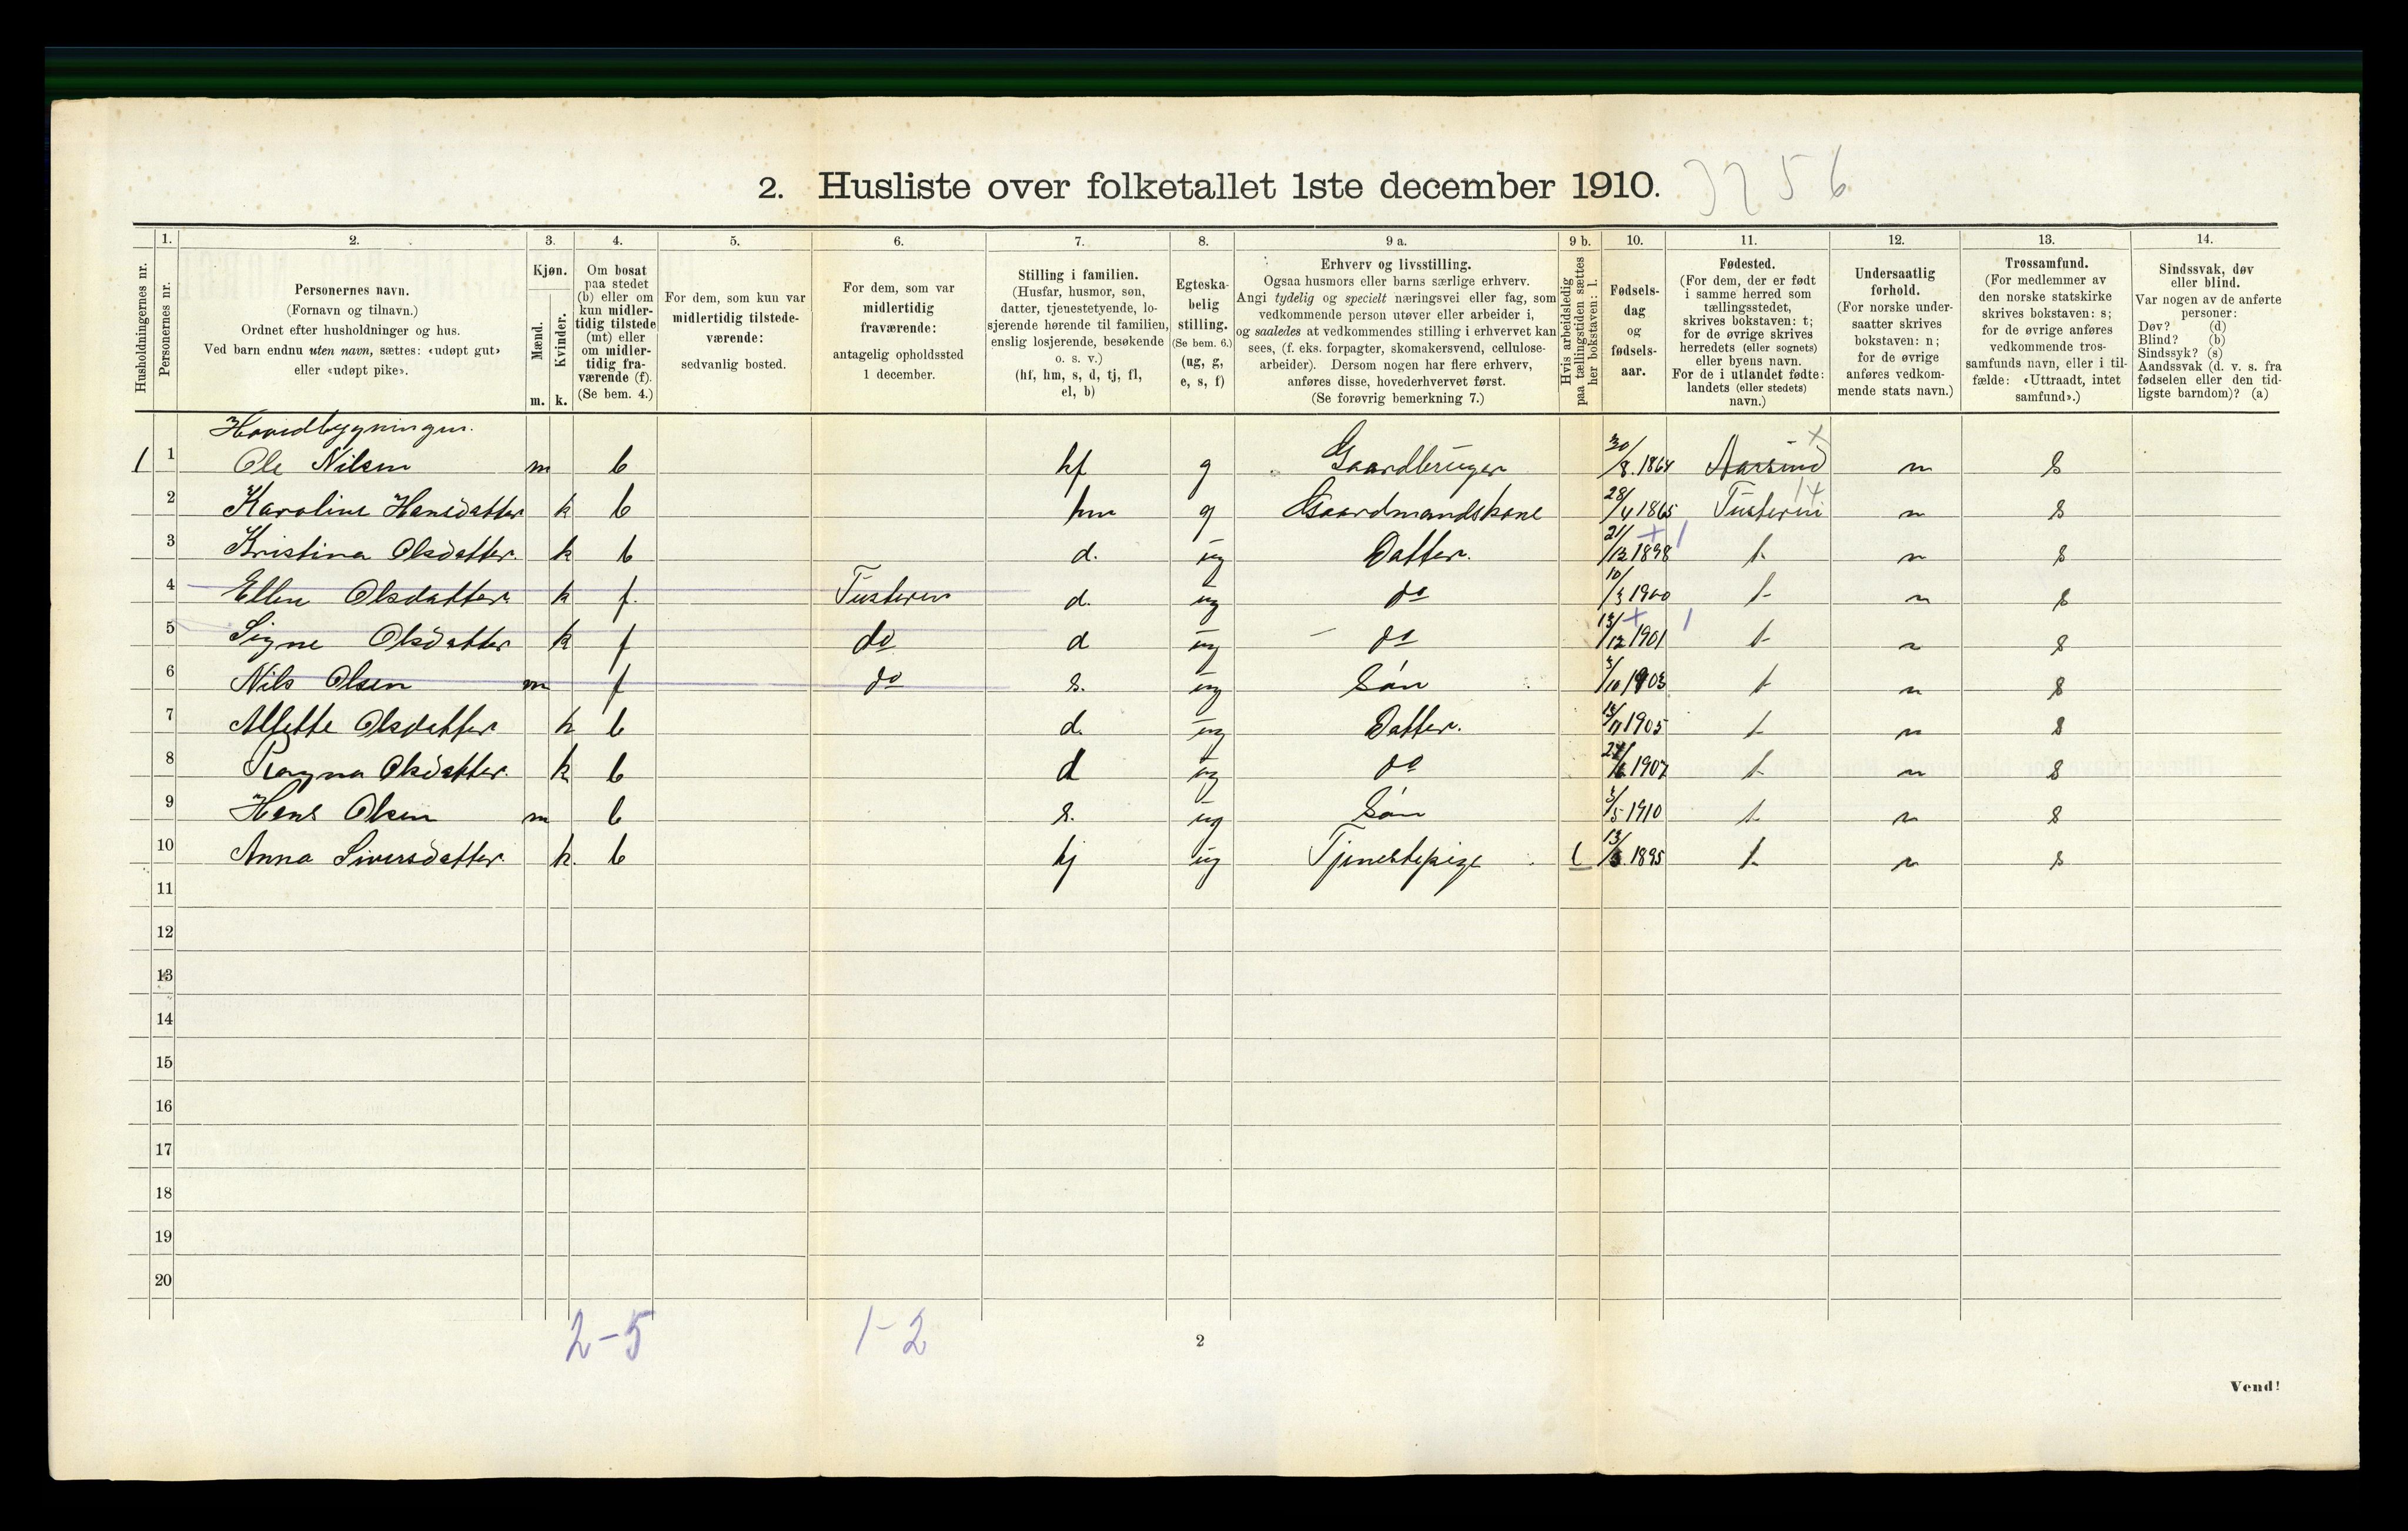 2. Husliste over folketallet 1ste december 1910. 3256
Husholdningernes nr.
1. Personernes nr.
2. Personernes navn. (Fornavn og tilnavn.) Ordnet efter husholdninger og hus. Ved barn endnu uten navn, sættes: «udøpt gut» eller «udøpt pike».
3. Kjøn. Mænd. m. Kvinder. k.
4. Om bosat paa stedet (b) eller om kun midlertidig tilstede (mt) eller om midlertidig fraværende (f). (Se bem. 4.)
5. For dem, som kun var midlertidig tilstedeværende: sedvanlig bosted.
6. For dem, som var midlertidig fraværende: antagelig opholdssted 1 december.
7. Stilling i familien. (Husfar, husmor, søn, datter, tjenestetyende, losjerende hørende til familien, enslig losjerende, besøkende o. s. v.) (hf, hm, s, d, tj, fl, el, b)
8. Egteskabelig stilling. (Se bem. 6.) (ug, g, e, s, f)
9 a. Erhverv og livsstilling. Ogsaa husmors eller barns særlige erhverv. Angi tydelig og specielt næringsvei eller fag, som vedkommende person utøver eller arbeider i, og saaledes at vedkommendes stilling i erhvervet kan sees, (f. eks. forpagter, skomakersvend, cellulosearbeider). Dersom nogen har flere erhverv, anføres disse, hovederhvervet først. (Se forøvrig bemerkning 7.)
9 b. Hvis arbeidsledig paa tællingstiden sættes her bokstaven: l.
10. Fødselsdag og fødselsaar.
11. Fødested. (For dem, der er født i samme herred som tællingsstedet, skrives bokstaven: t; for de øvrige skrives herredets (eller sognets) eller byens navn. For de i utlandet fødte: landets (eller stedets) navn.)
12. Undersaatlig forhold. (For norske undersaatter skrives bokstaven: n; for de øvrige anføres vedkommende stats navn.)
13. Trossamfund. (For medlemmer av den norske statskirke skrives bokstaven: s; for de øvrige anføres vedkommende trossamfunds navn, eller i tilfælde: «Uttraadt, intet samfund».)
14. Sindssvak, døv eller blind. Var nogen av de anførte personer: Døv? (d) Blind? (b) Sindssyk? (s) Aandssvak (d. v. s. fra fødselen eller den tidligste barndom)? (a)
Hovedbygningen.
1 1 Ole Nilsen m b hf g Gaardbruger 30/8.1864 n s
2 Karoline Hansdatter k b hm g Gaardmandskone 28/4 1865 Tusteren n s
3 Kristina Olsdatter. k b d. ug Datter. 21/12 1898 t n s
4 Ellen Olsdatter k f. Tusteren d. ug do 10/3 1900 t n s
5 Signe Olsdatter k f do d ug do 13/12 1901 t n s
6 Nils Olsen m f do s. ug Søn 3/10 1903 t n s
7 Olsdatter k b d. ug Datter. 1905 t n s
8 Ragna Olsdatter. k b d ug do 1907 t n s
9 Hans Olsen m b s. ug Søn 3/5 1910 t n s
10 Anna Siversdatter. k. b tj ug Tjenestepige l 1895 t n s
11
12
13
14
15
16
17
18
19
20
2-5 1-2
2
Vend!